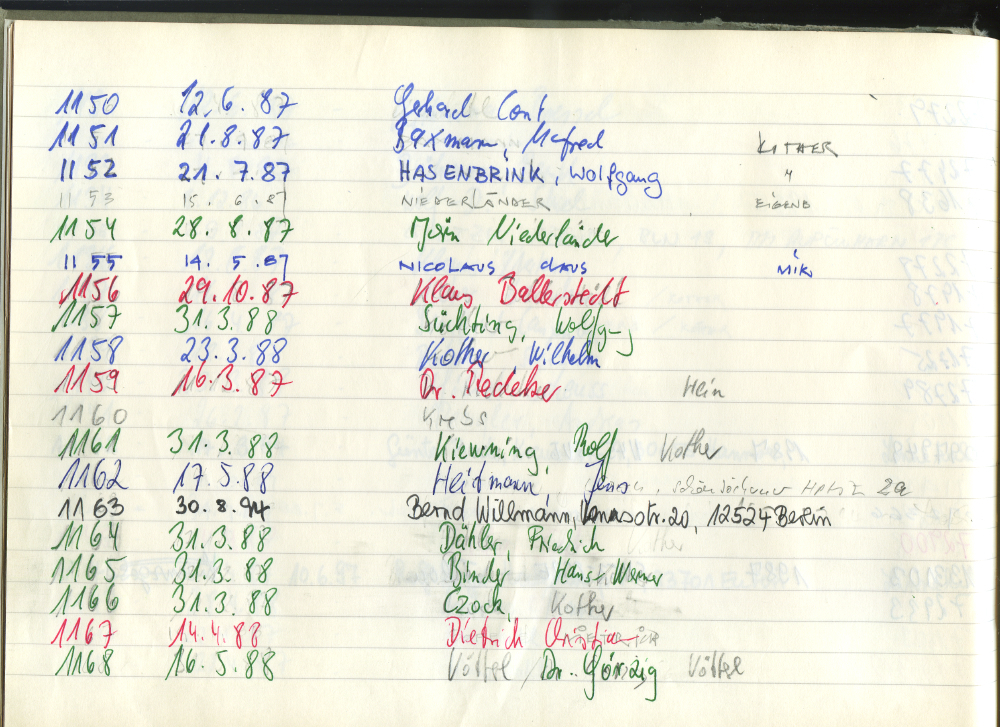 1150 12.6.87 Gerhard Cont
1151 21.8.87 Baxmann, Manfred KOTHER
1152 21.7.87 HASENBRINK, Wolfgang "
1153 15.6.87 NIEDERLÄNDER EIGEND
1154 28.8.87 Niederländer
1155 14.5.87 NICOLAUS claus MiK
1156 29.10.87 Klaus Ballerstedt
1157 31.3.88 Süchting, Wolfgang
1158 23.3.88 Kother, Wilhelm
1159 16.3.87 Dr. Redeker Hein
1160 Krebs
1161 31.3.88 Kiewning, Rolf Kother
1162 17.5.88 Heitmann, Jens 2a
1163 30.8.94 Bernd Willmann, Venusstr.20, 12524 Berlin
1164 31.3.88 Dähler, Friedrich Kother
1165 31.3.88 Binder, Hans-Werner
1166 31.3.88 Czock, Kother
1167 14.4.88 Dietrich Christian
1168 16.5.88 Völtel / Dr. Görzig Völtel